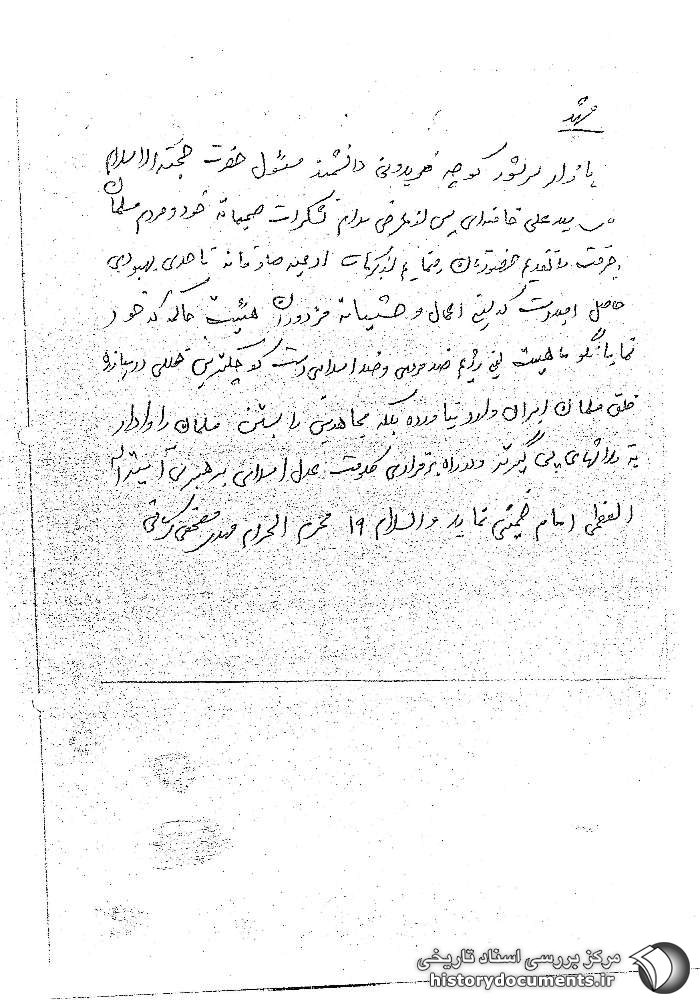 مشهد
بازار سرشور کوچه فریدونی دانشمند مسئول حضرت حجت الاسلام
سید علی خامنه‌ای پس از عرض سلام تشکرات صمیمانه خود و مردم مسلمان
تقدیم حضورتان ادعیه صادقانه تا حدی بهبودی
حاصل امید است که این اعمال وحشیانه مزدوران هیئت حاکمه که خود
نمایانگر ماهیت این رژیم ضد مردمی و ضد اسلامی است کوچکترین خللی در مبارزه
خلق مسلمان ایران وارد نیاورده بلکه مجاهدین راستین مسلمان را وادار
به گیرتر در راه برقراری حکومت عدل اسلامی برهبری آیت اله
العظمی امام خمینی نماید والسلام ۱۹ محرم الحرام مهدی
مرکز بررسی اسناد تاریخی
historydocuments.ir